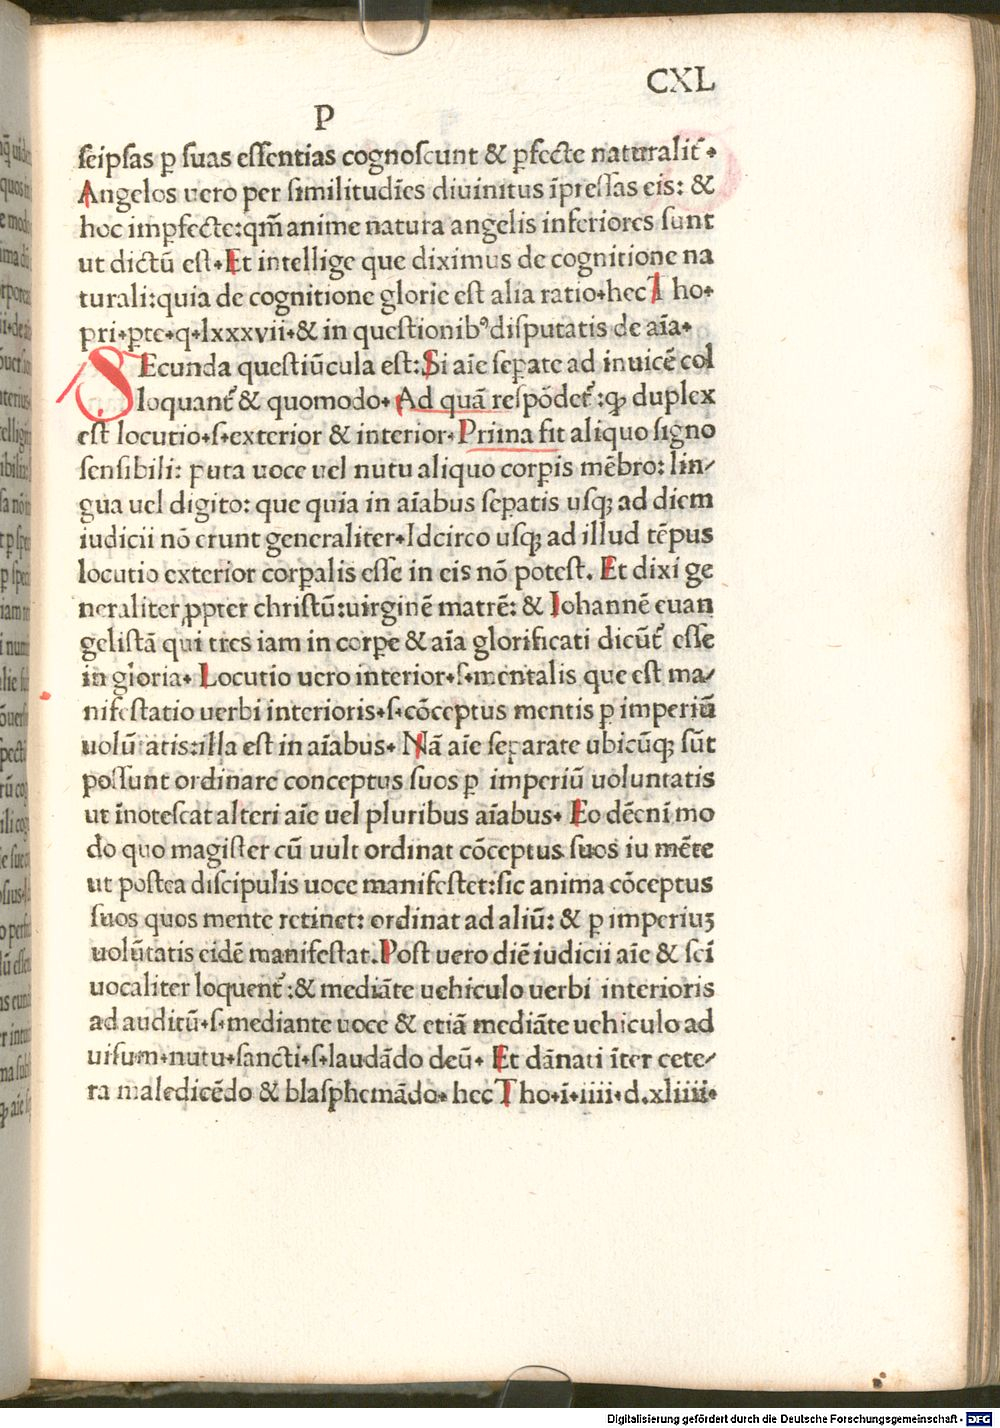 CXL
P
seipsas p̱ suas essentias cognoscunt & p̱fecte naturalit᷑.
Angelos uero per similitudīes diuinitus īpressas eis: &
hoc imp̱fecte: qm̄ anime natura angelis inferiores sunt
ut dictū est. Et intellige que diximus de cognitione na
turali: quia de cognitione glorie est alia ratio. hec Tho.
pri. p̱te. q. lxxxvii. & in questionibꝰ disputatis de aīa.
SEcunda questiūcula est: Si aīe sep̱ate ad inuicē col
loquant᷑ & quomodo. Ad quā respōdet᷑: ꝙ duplex
est locutio. s. exterior & interior. Prima fit aliquo signo
sensibili: puta uoce uel nutu aliquo corp̱is mēbro: lin/
gua uel digito: que quia in aīabus sep̱atis usqꝫ ad diem
iudicii nō erunt generaliter. Idcirco usqꝫ ad illud tēpus
locutio exterior corp̱alis esse in eis nō potest. Et dixi ge
neraliter ꝓpter christū: uirginē matrē: & Iohannē euan
gelistā qui tres iam in corpe & aīa glorificati dicūt᷑ esse
in gloria. Locutio uero interior. s. mentalis que est ma/
nifestatio uerbi interioris. s. cōceptus mentis p̱ imperiū
uolūtatis: illa est in aīabus. Nā aīe separate ubicūqꝫ sūt
possunt ordinare conceptus suos p̱ imperiū uoluntatis
ut īnotescat alteri aīe uel pluribus aīabus. Eo dēcni mo
do quo magister cū uult ordinat cōceptus suos iu mēte
ut postea discipulis uoce manifestet: sic anima cōceptus
suos quos mente retinet: ordinat ad aliū: & p̱ imperiuꝫ
uolūtatis eidē manifestat. Post uero diē iudicii aīe & sc̄i
uocaliter loquent᷑: & mediāte uehiculo uerbi interioris
ad auditū. s. mediante uoce & etiā mediāte uehiculo ad
uisum. nutu. sancti. s. laudādo deū. Et dānati īter cete/
ra maledicēdo & blasphemādo. hec Tho. ī. iiii. d. xliiii.
Digitalisierung gefördert durch die Deutsche Forschungsgemeinschaft - DFG